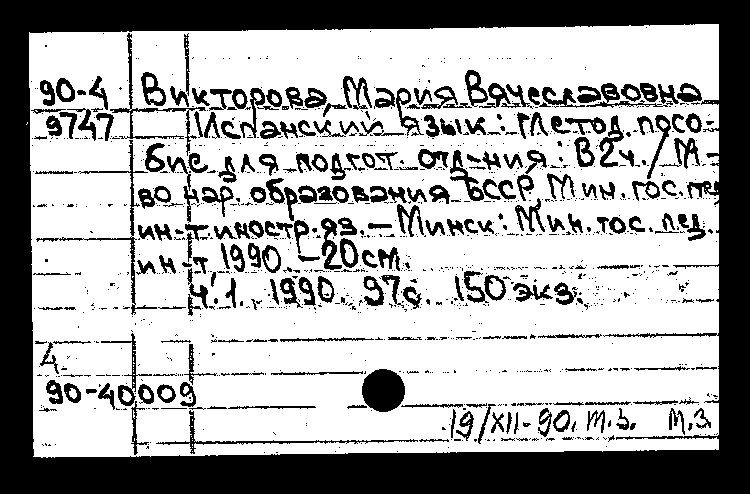 90-4 Викторова, Мария Вячеславовна
9747 Испанский язык: Метод. посо-
бие для подгот. отд-ния: В 2 ч. / М-
во нар. образования БССР, Мин. гос. пед
ин-т иностр. яз. — Минск: Мин. гос. пед.
ин-т, 1990. — 20 см.
Ч. 1. 1990. 97 с. 150 экз.
4
90-40009
19/XII-90. т.з. м.з.